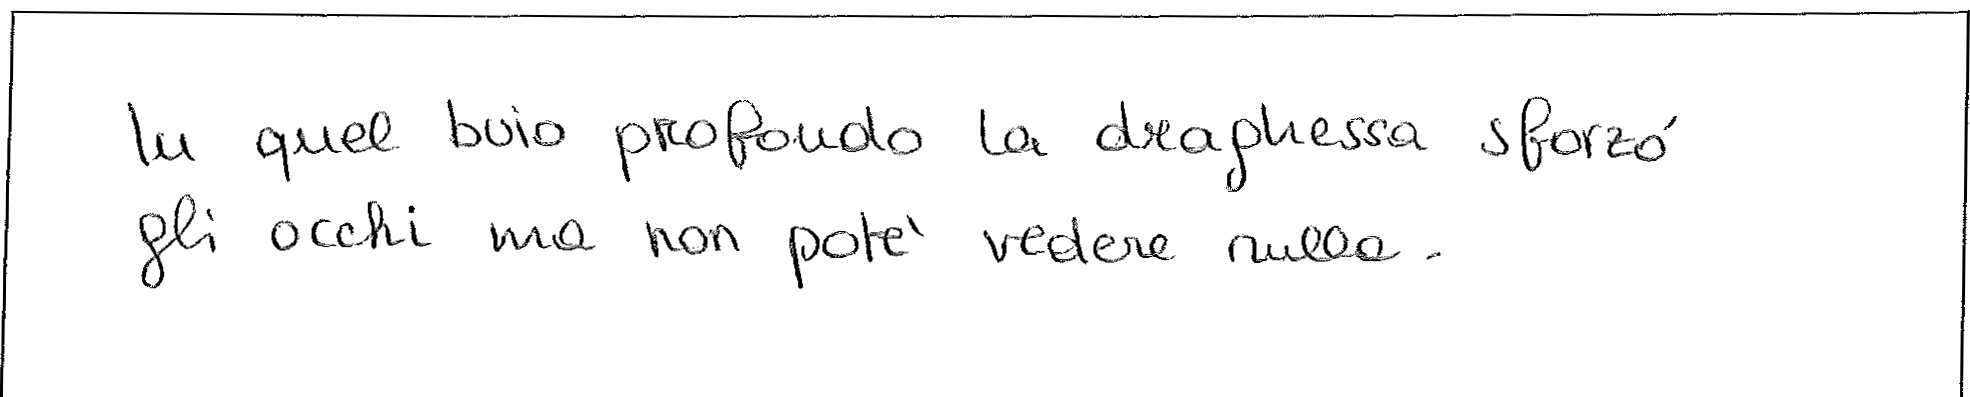 In quel buio profondo la draghessa sforzó
gli occhi ma non pote' vedere nulla.